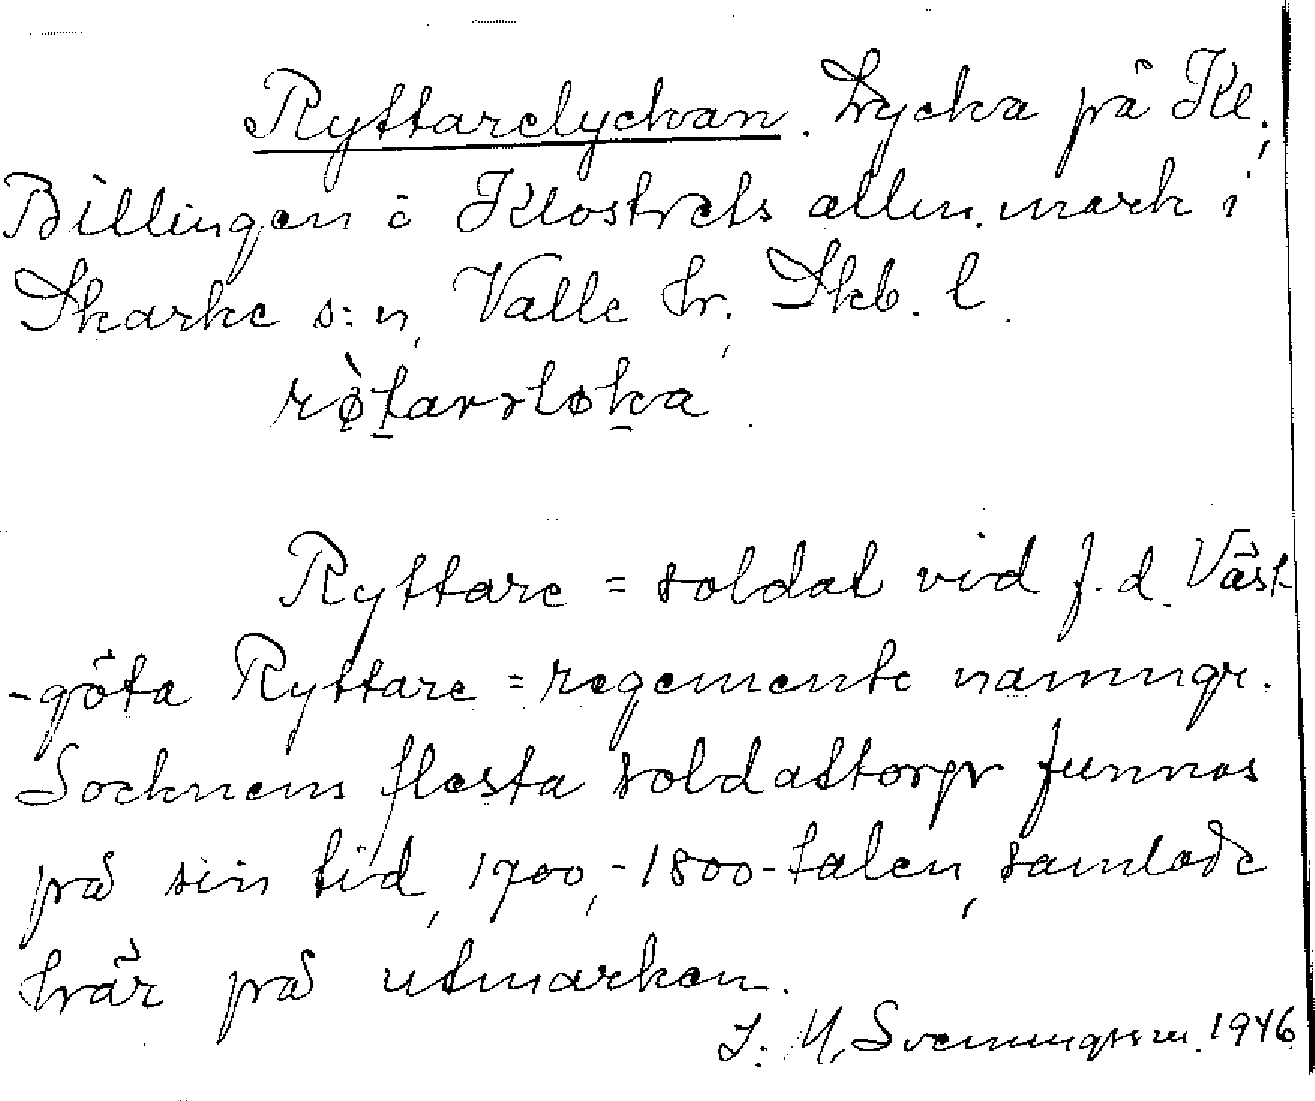 Ryttarelyckan. Lycka på Kl.
Billingen å Klostrets allm.mark i
Skarke s:n, Valle hr, Skb. l.
Ryttare = soldat vid f.d. Väst-
-göta Ryttare = regemente namngr.
Socknens flesta soldattorp funnos
på sin tid, 1700,-1800-talen, samlade
här på utmarken.
Svenningsson. 1946